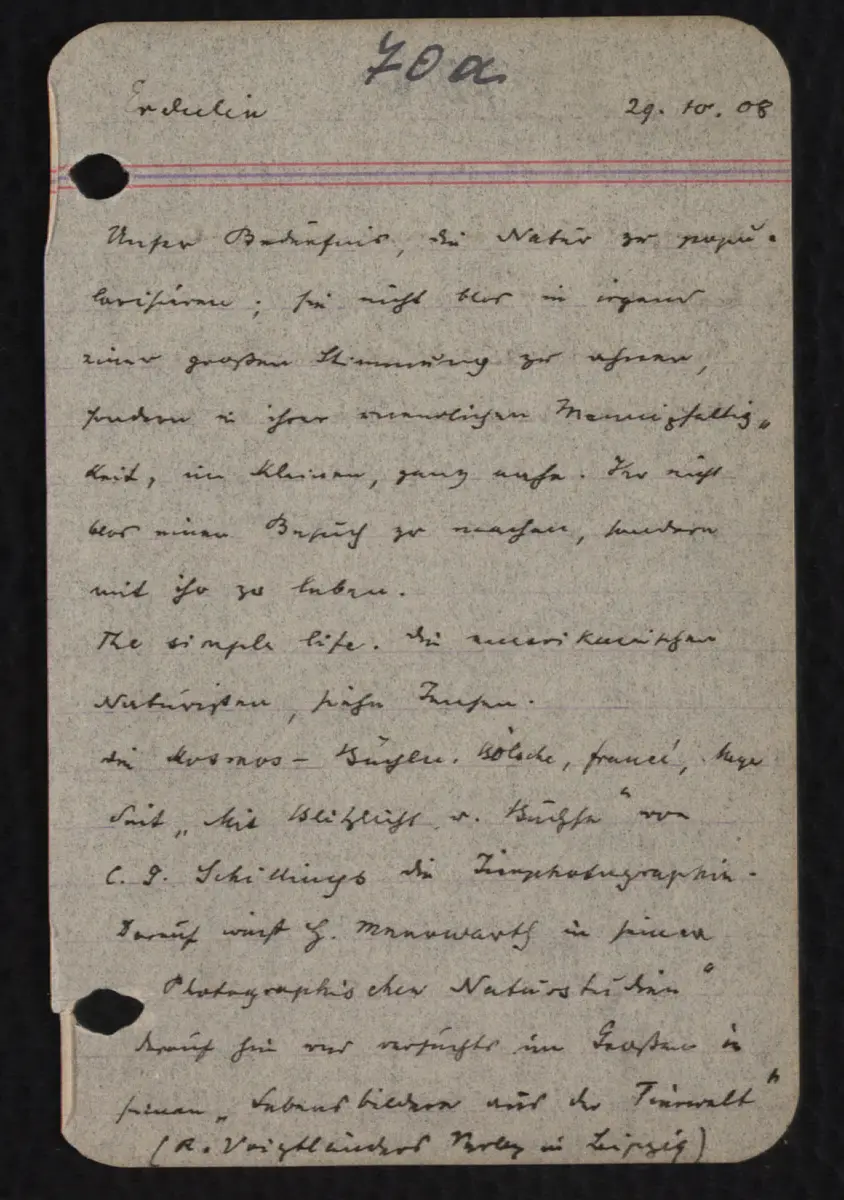 70 a
29. 10. 08
Unser Bedürfnis, die Natur zu popu-
larisieren; sie nicht blos in irgend
einer großen Stimmung zu ahnen,
sondern in ihrer unendlichen Mannigfaltig„
keit, im Kleinen, ganz nahe. Ihr nicht
blos einen Besuch zu machen, sondern
mit ihr zu leben.
The simple life. Die amerikanischen
Naturisten, siehe Jensen.
Die Kosmos – Bücher. Bölsche, Francé, Meyer
Seit „Mit Blitzlicht u. Büchse“ von
C. G. Schillings die Tierphotographie.
Darauf weist H. Meerwarth in seinen
Photographischen Naturstudien“
darauf hin und versuchts im Großen in
seinen „Lebensbildern aus der Tierwelt“
(R. Voigtländers Verlag in Leipzig)